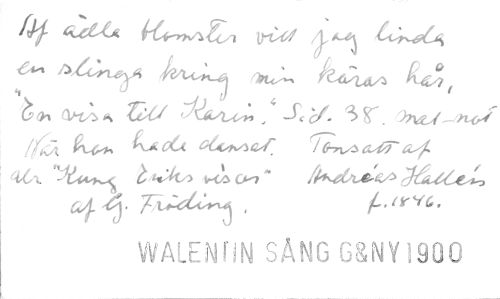 Af ädla blomster vill jag linda
en slinga kring min käras hår,
"En visa till Karin." Sid. 38. mat-not
När hon hade dansat. Tonsatt af
ur "Kung Eriks visor" Andréas Halléns
af G. Fröding. f. 1846.
WALENTIN SÅNG G&NY 1900